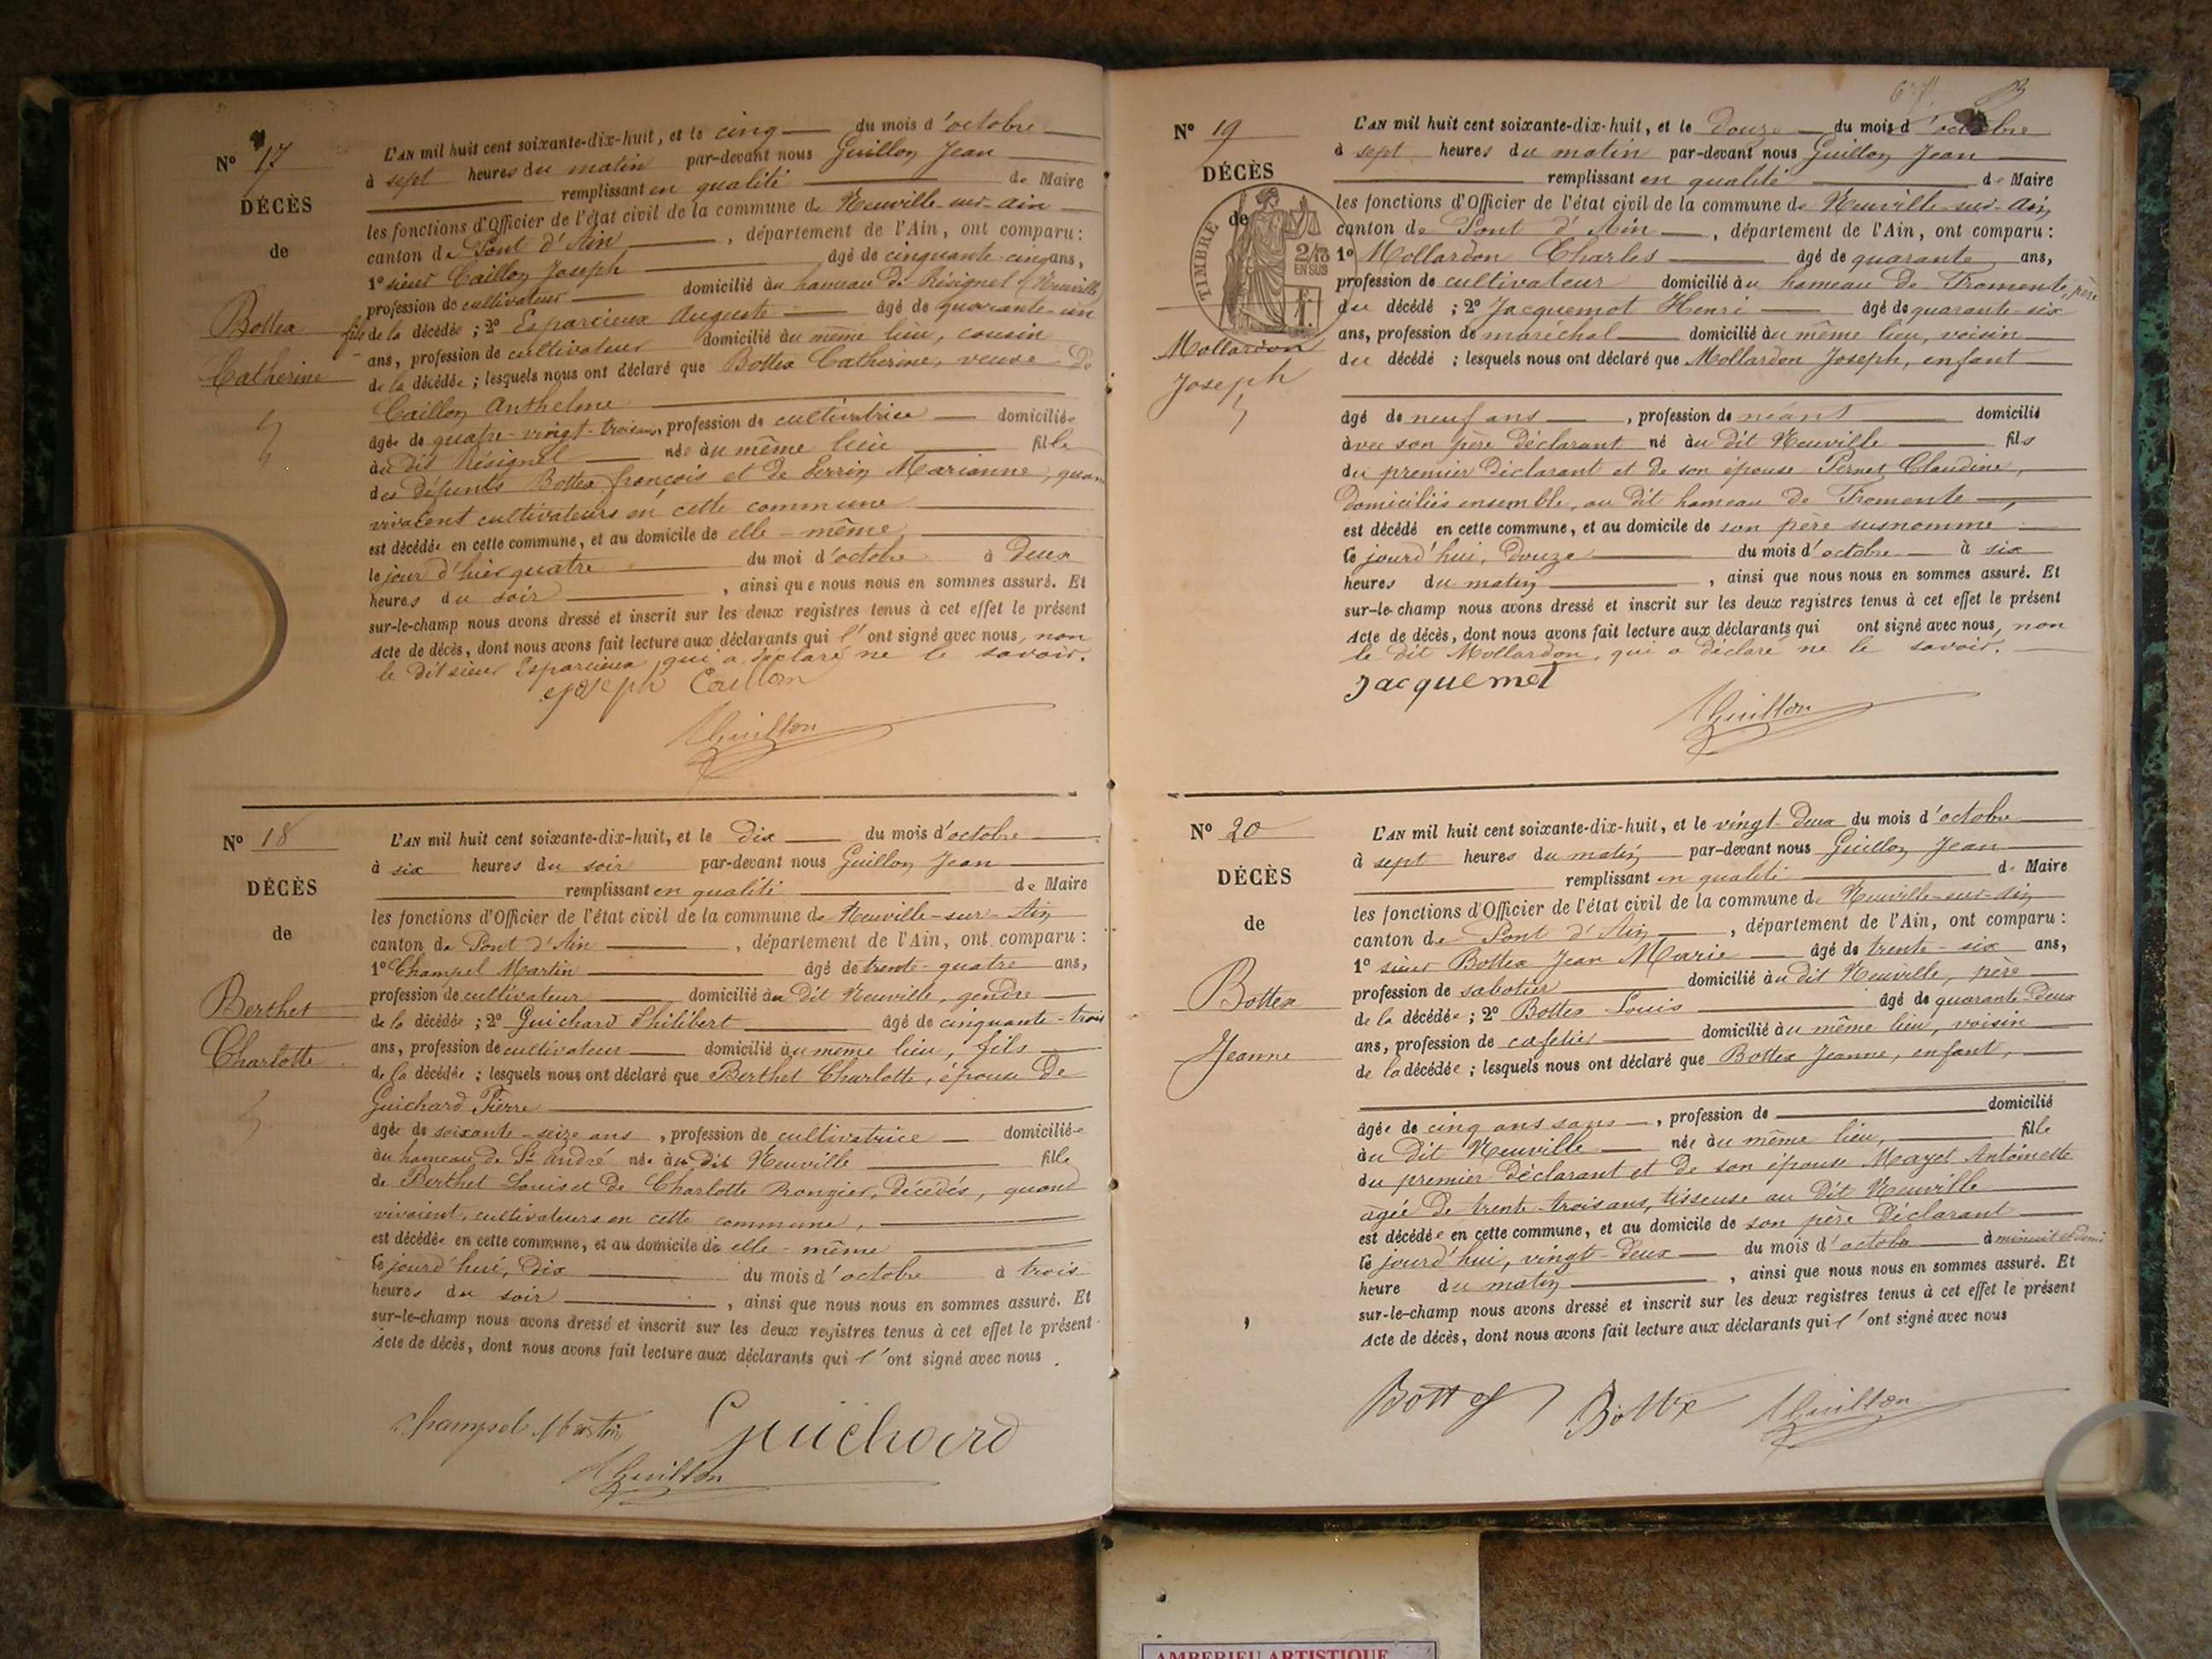 N° 17
DÉCÈS
de
Bottex
Catherine
L'AN mil huit cent soixante-dix-huit, et le cinq du mois d'octobre
à sept heures du matin par-devant nous Guillon Jean
remplissant en qualité de Maire
les fonctions d'Officier de l'état civil de la commune de Neuville-sur-Ain
canton de Pont d'Ain, département de l'Ain, ont comparu:
1° sieur Caillon Joseph âgé de cinquante-cinq ans,
profession de cultivateur domicilié au hameau de Résignel (Neuville
fils de la décédée; 2° Esparcieux Auguste âgé de quarante-un
ans, profession de cultivateur domicilié au même lieu, cousin
de la décédée; lesquels nous ont déclaré que Bottex Catherine, veuve de
Caillon Anthelme
âgée de quatre-vingt-trois ans, profession de cultivatrice domiciliée
au dit Résignel née au même lieu fille
des défunts Bottex françois et de Perrin Marianne, quan
vivaient cultivateurs en cette commune
est décédée en cette commune, et au domicile de elle-même
le jour d'hier quatre du moi d'octobre à deux
heures du soir, ainsi que nous nous en sommes assuré. Et
sur-le-champ nous avons dressé et inscrit sur les deux registres tenus à cet effet le présent
Acte de décès, dont nous avons fait lecture aux déclarants qui l'ont signé avec nous, non
le dit sieur Esparcieux, qui a déclaré ne le savoir.
Joseph Caillon
Guillon
N° 18
DÉCÈS
de
Berthet
Charlotte
L'AN mil huit cent soixante-dix-huit, et le dix du mois d'octobre
à six heures du soir par-devant nous Guillon Jean
remplissant en qualité de Maire
les fonctions d'Officier de l'état civil de la commune de Neuville-sur-Ain
canton de Pont d'Ain, département de l'Ain, ont comparu:
1° Champel Martin âgé de trente-quatre ans,
profession de cultivateur domicilié au dit Neuville, gendre
de la décédée; 2° Guichard Philibert âgé de cinquante-trois
ans, profession de cultivateur domicilié au même lieu, fils
de la décédée; lesquels nous ont déclaré que Berthet Charlotte, épouse de
Guichard Pierre
âgée de soixante-seize ans, profession de cultivatrice domiciliée
au hameau de St André née au dit Neuville fille
de Berthet Louis et de Charlotte Rongier, décédés, quand
vivaient, cultivateurs en cette commune,
est décédée en cette commune, et au domicile de elle-même
le jourd'hui, dix du mois d'octobre à trois
heures du soir, ainsi que nous nous en sommes assuré. Et
sur-le-champ nous avons dressé et inscrit sur les deux registres tenus à cet effet le présent
Acte de décès, dont nous avons fait lecture aux déclarants qui l'ont signé avec nous.
Champel Martin Guichard
Guillon
N° 19
DÉCÈS
de
TIMBRE
2/10
EN SUS
Mollardon
Joseph
L'AN mil huit cent soixante-dix-huit, et le douze du mois d'octobre
à sept heures du matin par-devant nous Guillon Jean
remplissant en qualité de Maire
les fonctions d'Officier de l'état civil de la commune de Neuville-sur-Ain
canton de Pont d'Ain, département de l'Ain, ont comparu:
1° Mollardon Charles âgé de quarante ans,
profession de cultivateur domicilié au hameau de Fromente, père
du décédé; 2° Jacquemot Henri âgé de quarante-six
ans, profession de maréchal domicilié au même lieu, voisin
du décédé; lesquels nous ont déclaré que Mollardon Joseph, enfant
âgé de neuf ans, profession de néant domicilié
avec son père déclarant né au dit Neuville fils
du premier déclarant et de son épouse Pernet Claudine,
domiciliés ensemble, au dit hameau de Fromente,
est décédé en cette commune, et au domicile de son père susnommé
le jourd'hui, douze du mois d'octobre à six
heures du matin, ainsi que nous nous en sommes assuré. Et
sur-le-champ nous avons dressé et inscrit sur les deux registres tenus à cet effet le présent
Acte de décès, dont nous avons fait lecture aux déclarants qui ont signé avec nous, non
le dit Mollardon, qui a déclaré ne le savoir.
Jacquemot
Guillon
N° 20
DÉCÈS
de
Bottex
Jeanne
L'AN mil huit cent soixante-dix-huit, et le vingt-deux du mois d'octobre
à sept heures du matin par-devant nous Guillon Jean
remplissant en qualité de Maire
les fonctions d'Officier de l'état civil de la commune de Neuville-sur-Ain
canton de Pont d'Ain, département de l'Ain, ont comparu:
1° sieur Bottex Jean Marie âgé de trente-six ans,
profession de sabotier domicilié au dit Neuville, père
de la décédée; 2° Bottex Louis âgé de quarante-deux
ans, profession de cafetier domicilié au même lieu, voisin
de la décédée; lesquels nous ont déclaré que Bottex Jeanne, enfant,
âgée de cinq ans sans, profession de domicilié
au dit Neuville née au même lieu, fille
du premier déclarant et de son épouse Mayet Antoinette
agée de trente-trois ans, tisseuse au dit Neuville
est décédée en cette commune, et au domicile de son père déclarant
le jourd'hui, vingt-deux du mois d'octobre à minuit et demi
heure du matin, ainsi que nous nous en sommes assuré. Et
sur-le-champ nous avons dressé et inscrit sur les deux registres tenus à cet effet le présent
Acte de décès, dont nous avons fait lecture aux déclarants qui l'ont signé avec nous
Bottex Bottex Guillon
AMBERIEU ARTISTIQUE